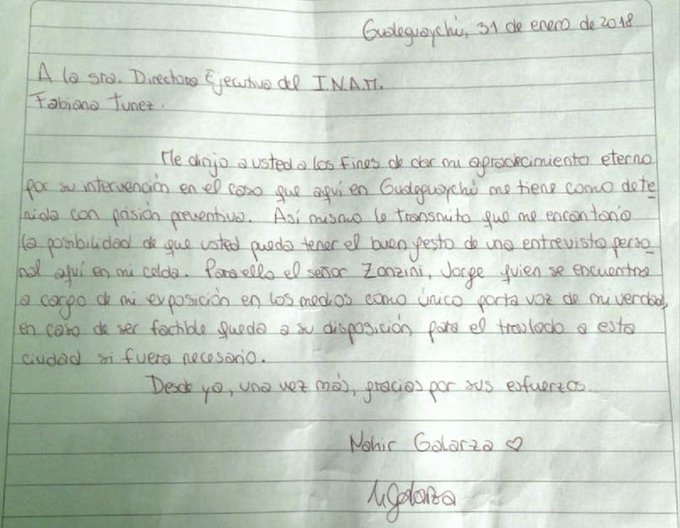 Gualeguaychú, 31 de enero de 2018
A la sra. Directora Ejecutiva del I.N.A.M.
Fabiana Tunez.
Me dirijo a usted a los fines de dar mi agradecimiento eterno
por su intervención en el caso que aquí en Gualeguaychú me tiene como dete_
nida con prisión preventiva. Así mismo le transmito que me encantaría
la posibilidad de que usted pueda tener el buen gesto de una entrevista perso_
nal aquí en mi celda. Para ello el señor Zonzini, Jorge quien se encuentra
a cargo de mi exposición en los medios como único porta voz de mi verdad,
en caso de ser factible queda a su disposición para el traslado a esta
ciudad si fuera necesario.
Desde ya, una vez más, gracias por sus esfuerzos.
Nahir Galarza ♡
NGalarza